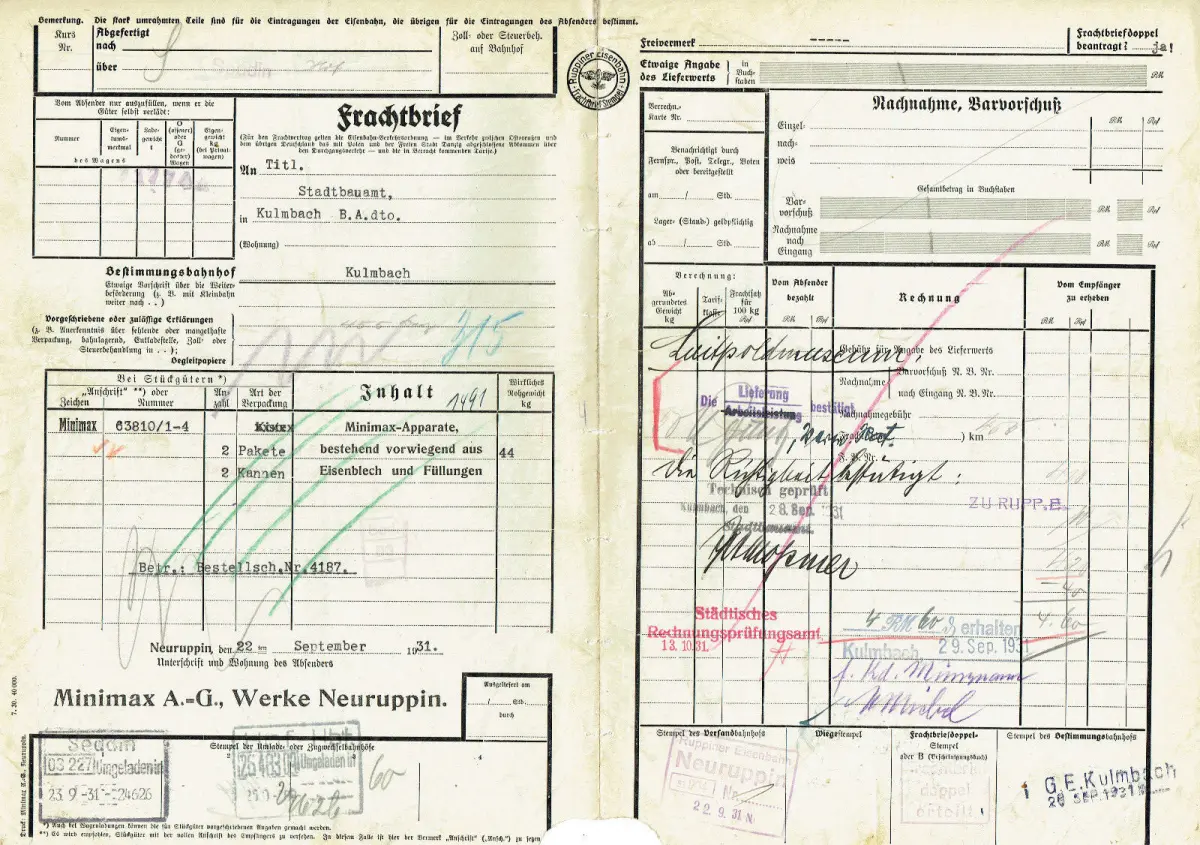 Bemerkung. Die stark umrahmten Teile sind für die Eintragungen der Eisenbahn, die übrigen für die Eintragungen des Absenders bestimmt.
Kurs
Nr.
Abgefertigt
nach
über
Zoll- oder Steuerbeh.
auf Bahnhof
Vom Absender nur auszufüllen, wenn er die
Güter selbst verlädt:
Nummer
Eigen-
tums-
merkmal
Lade-
gewicht
t
G
(offener)
oder
G
(ge-
deckter)
Wagen
Eigen-
gewicht
kg
(bei Privat-
wagen)
des Wagens
Frachtbrief
(Für den Frachtvertrag gelten die Eisenbahn-Verkehrsordnung — im Verkehr zwischen Ostpreußen und
dem übrigen Deutschland das mit Polen und der Freien Stadt Danzig abgeschlossene Abkommen über
den Durchgangsverkehr — und die in Betracht kommenden Tarife.)
An Titl.
Stadtbauamt,
in Kulmbach B.A.dto.
(Wohnung)
Bestimmungsbahnhof Kulmbach
Etwaige Vorschrift über die Weiter-
beförderung (z. B. mit Kleinbahn
weiter nach . .)
Vorgeschriebene oder zulässige Erklärungen
(z. B. Anerkenntnis über fehlende oder mangelhafte
Verpackung, bahnlagernd, Entladestelle, Zoll- oder
Steuerbehandlung in . .);
Begleitpapiere
315
Bei Stückgütern *)
„Anschrift" **) oder
Zeichen Nummer
An
zahl
Art der
Verpackung
Inhalt
1491
Wirkliches
Rohgewicht
kg
Minimax 63810/1-4 Minimax-Apparate,
2 Pakete bestehend vorwiegend aus 44
2 Kannen Eisenblech und Füllungen
Betr.: Bestellsch.Nr.4187.
Neuruppin, den 22ten September 1931.
Unterschrift und Wohnung des Absenders
Minimax A.-G., Werke Neuruppin.
Ausgeliefert am
/ Std.
durch
Stempel der Umlade- oder Zugwechselbahnhöfe
03 227 Umgeladen in
23.9.-31.-24626
Umgeladen in
60
*) Auch bei Wagenladungen können die für Stückgüter vorgeschriebenen Angaben gemacht werden.
**) Es wird empfohlen, Stückgüter mit der vollen Anschrift des Empfängers zu versehen. In diesem Falle ist hier der Vermerk „Anschrift" („Ansch.") zu setzen
Druck: Minimax A.-G., Neuruppin. 7. 30. 40 000.
Ruppiner Eisenbahn
Frachtbrief Stempel
Freivermerk -----
Frachtbriefdoppel
beantragt? ja!
Etwaige Angabe
des Lieferwerts
in
Buch-
staben
RM
Verrechn.-
Karte Nr.
Benachrichtigt durch
Fernspr., Post, Telegr., Boten
oder bereitgestellt
am / Std.
Lager- (Stand-) geldpflichtig
ab / Std.
Nachnahme, Barvorschuß
Einzel-
nach-
weis
RM Rpf
Gesamtbetrag in Buchstaben
Bar-
vorschuß
RM Rpf
Nachnahme
nach
Eingang
RM Rpf
Berechnung:
Ab-
gerundetes
Gewicht
kg
Tarif-
klasse
Frachtsatz
für
100 kg
Rpf
Vom Absender
bezahlt
RM Rpf
Rechnung
Vom Empfänger
zu erheben
RM Rpf
Luitpoldmuseum.
Gebühr für Angabe des Lieferwerts
Barvorschuß N. B. Nr.
Nachnahme
nach Eingang N. B. Nr.
Die Lieferung
Arbeitsleistung bestätigt
Nachnahmegebühr
Fracht ) km
F. B. Nr.
Die Richtigkeit bestätigt:
Technisch geprüft
Kulmbach, den 28. Sep. 1931
Stadtbauamt.
ZU RUPP.E.
Städtisches
Rechnungsprüfungsamt
13.10.31.
4 RM 60 ₰ erhalten
4.60
Kulmbach, 29. Sep. 1931
Stempel des Versandbahnhofs
Wiegestempel
Frachtbriefdoppel-
Stempel
oder B (Bescheinigungsbuch)
Stempel des Bestimmungsbahnhofs
Ruppiner Eisenbahn
Neuruppin
Nr.
22.9.31 N
Frachtbrief-
doppel
erteilt
G.E. Kulmbach
26 SEP. 1931 N